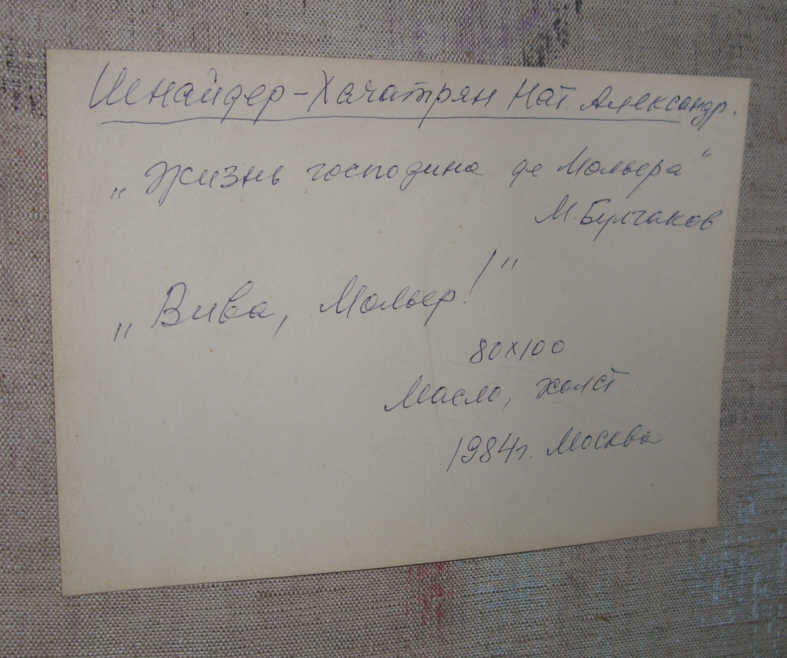 Шнайдер-Хачатрян Нат. Александр.
„Жизнь господина де Мольера“
М. Булгаков
„Вива, Мольер!“
80х100
Масло, холст
1984г. Москва